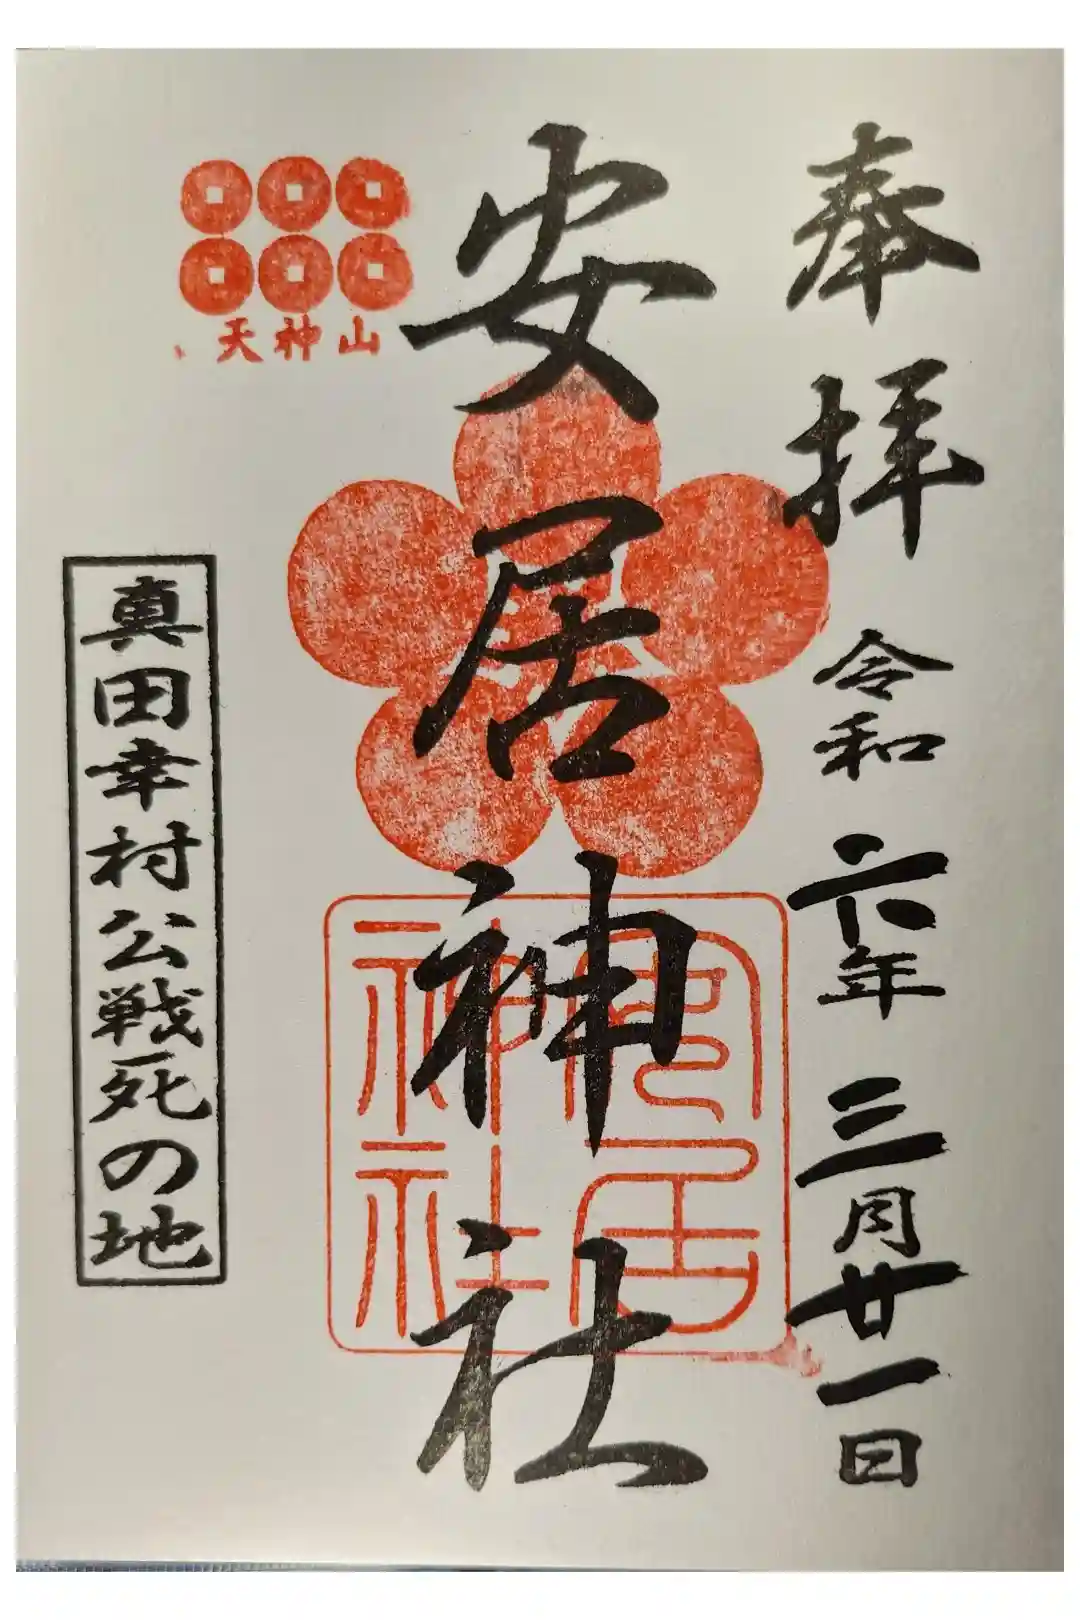 奉拝 令和六年三月廿一日
安居神社
安居神社
天神山
真田幸村公戦死の地